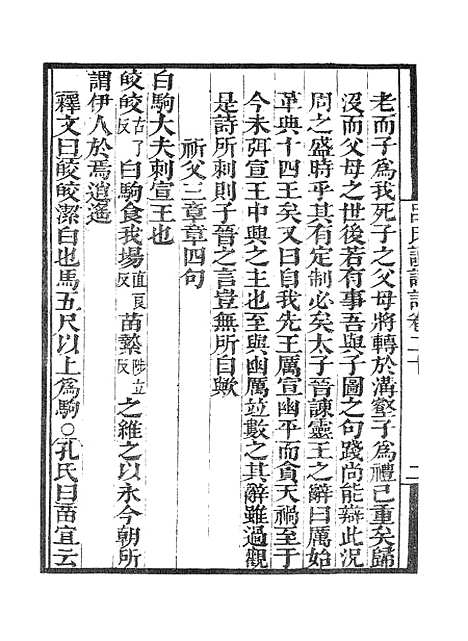 呂氏家塾讀詩記卷二十
二
老而子爲我死子之父母將轉於溝壑子爲禮已重矣歸
沒而父母之世後若有事吾與子圖之句踐尚能辯此況
周之盛時乎其有定制必矣太子晉諫靈王之辭曰厲始
革典十四王矣又曰自我先王厲宣幽平而貪天禍至于
今未弭宣王中興之主也至與幽厲並數之其辭雖過觀
是詩所刺則子晉之言豈無所自歟
祈父三章章四句
白駒大夫刺宣王也
皎皎古了反白駒食我場直良反苗縶陟立反之維之以永今朝所
謂伊人於焉逍遙
釋文曰皎皎潔白也馬五尺以上爲駒○孔氏曰苗宜云